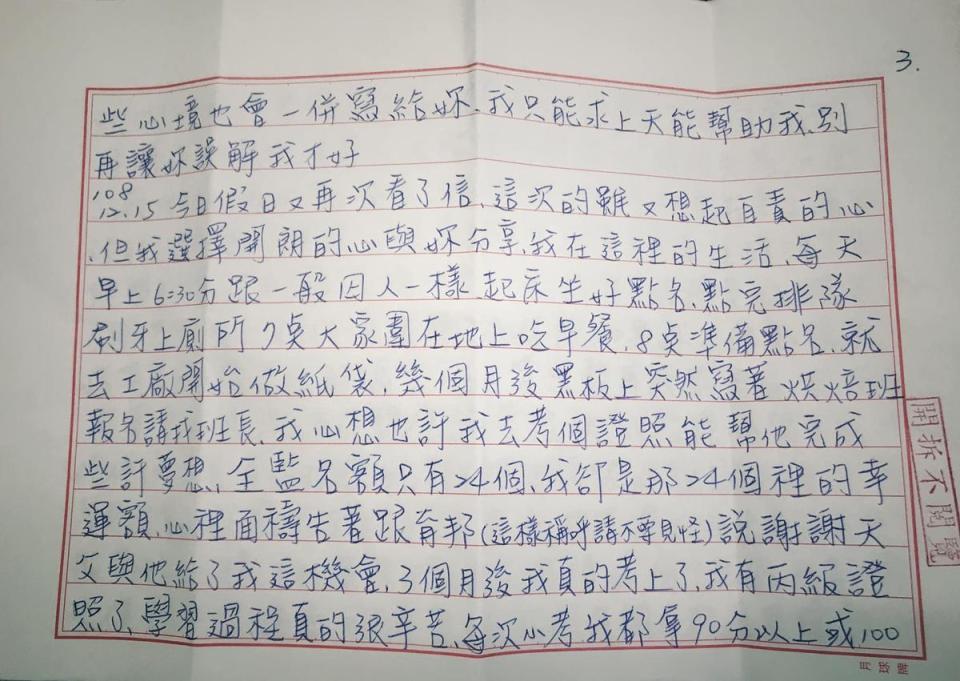 3.
些心境也會一併寫給妳、我只能求上天能幫助我、別
再讓妳誤解我才好
108
12.15 今日假日又再次看了信、這次的雖又想起自責的心
、但我選擇開朗的心與妳分享、我在這裡的生活、每天
早上6:30分跟一般囚人一樣、起床坐好點名、點完排隊
刷牙上廁所7点大家圍在地上吃早餐、8点準備點名、就
去工廠開始做紙袋、幾個月後黑板上突然寫著烘焙班
報名請找班長、我心想也許我去考個證照能幫他完成
些許夢想、全監名額只有24個、我卻是那24個裡的幸
運額、心裡面禱告著跟育邦(這樣稱呼請不要見怪)說謝謝天
父與他給了我這機會、3個月後我真的考上了、我有丙級證
照了、學習過程真的很辛苦、每次小考我都拿90分以上或100
開拆不閱覽
月球牌